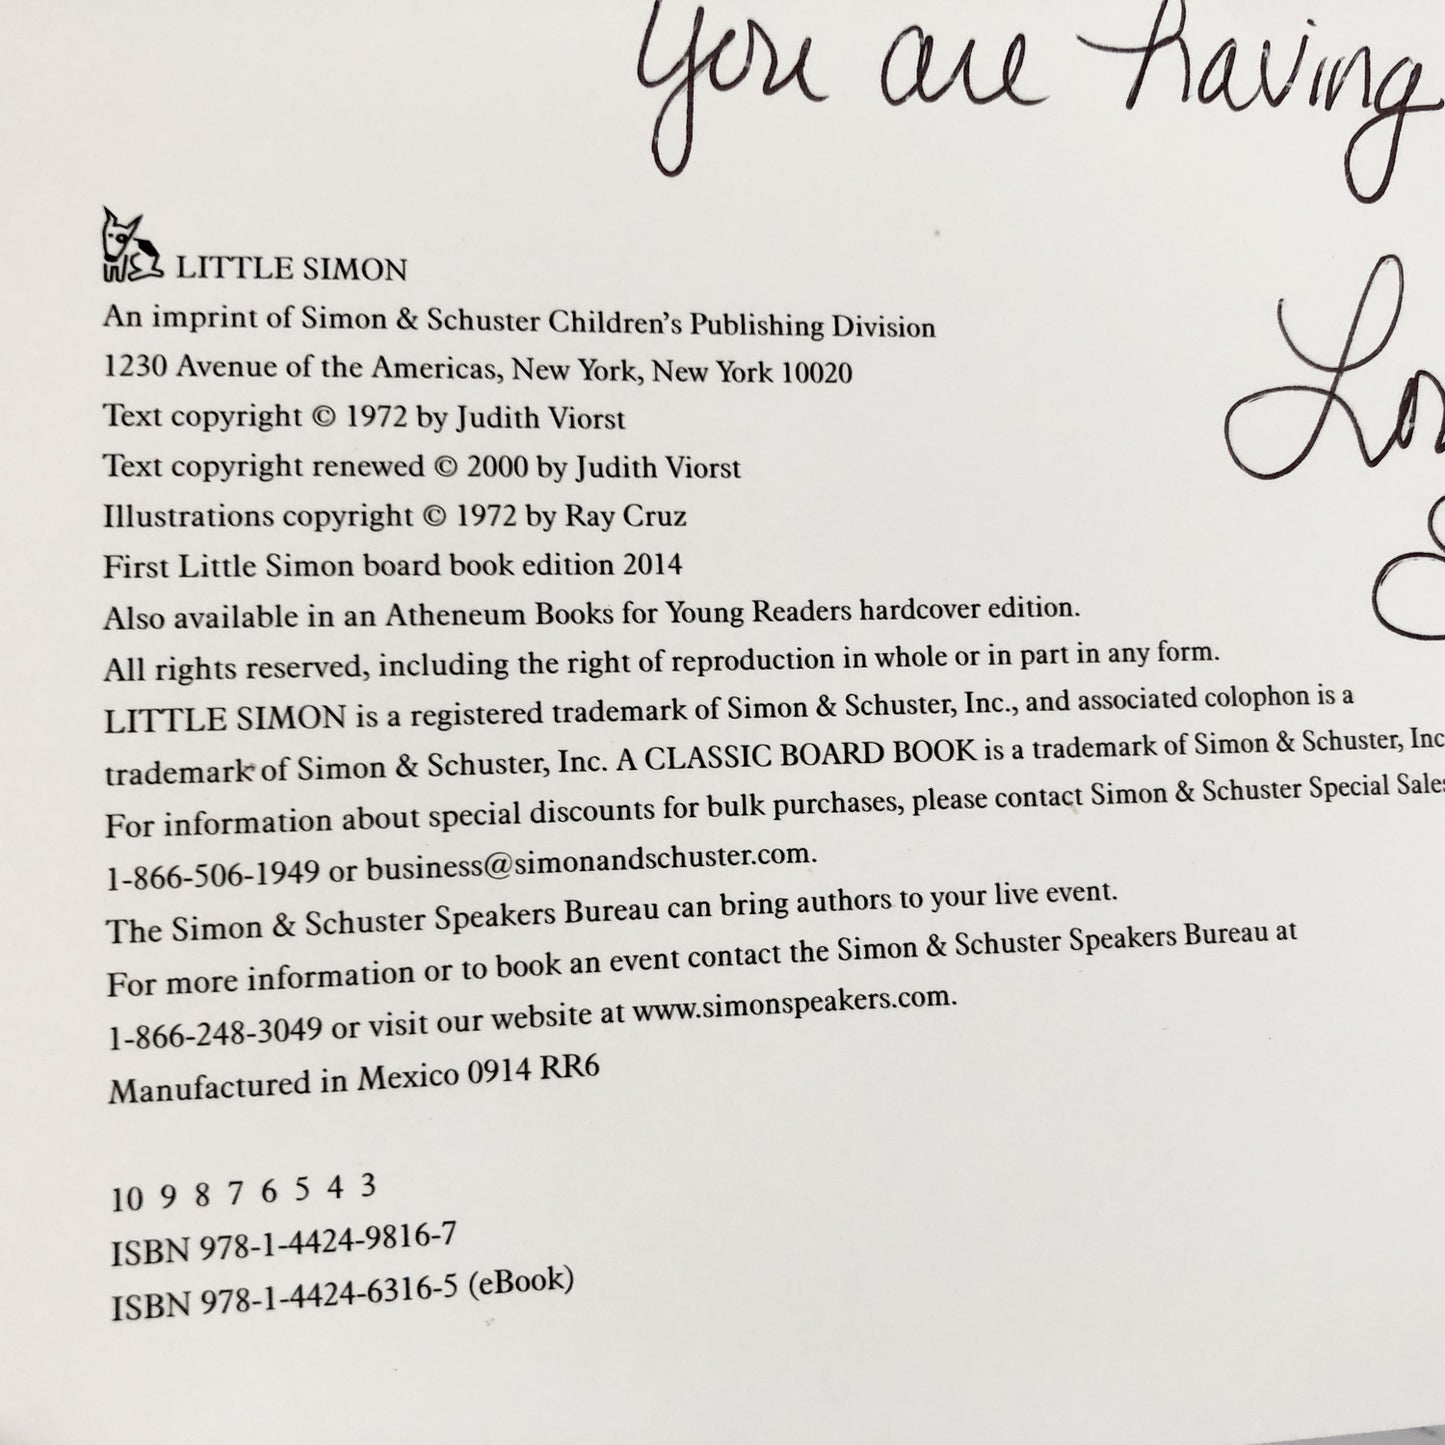 you are having
LITTLE SIMON
An imprint of Simon & Schuster Children's Publishing Division
1230 Avenue of the Americas, New York, New York 10020
Text copyright © 1972 by Judith Viorst
Text copyright renewed © 2000 by Judith Viorst
Illustrations copyright © 1972 by Ray Cruz
First Little Simon board book edition 2014
Also available in an Atheneum Books for Young Readers hardcover edition.
All rights reserved, including the right of reproduction in whole or in part in any form.
LITTLE SIMON is a registered trademark of Simon & Schuster, Inc., and associated colophon is a
trademark of Simon & Schuster, Inc. A CLASSIC BOARD BOOK is a trademark of Simon & Schuster, Inc
For information about special discounts for bulk purchases, please contact Simon & Schuster Special Sales
1-866-506-1949 or business@simonandschuster.com.
The Simon & Schuster Speakers Bureau can bring authors to your live event.
For more information or to book an event contact the Simon & Schuster Speakers Bureau at
1-866-248-3049 or visit our website at www.simonspeakers.com.
Manufactured in Mexico 0914 RR6
10 9 8 7 6 5 4 3
ISBN 978-1-4424-9816-7
ISBN 978-1-4424-6316-5 (eBook)